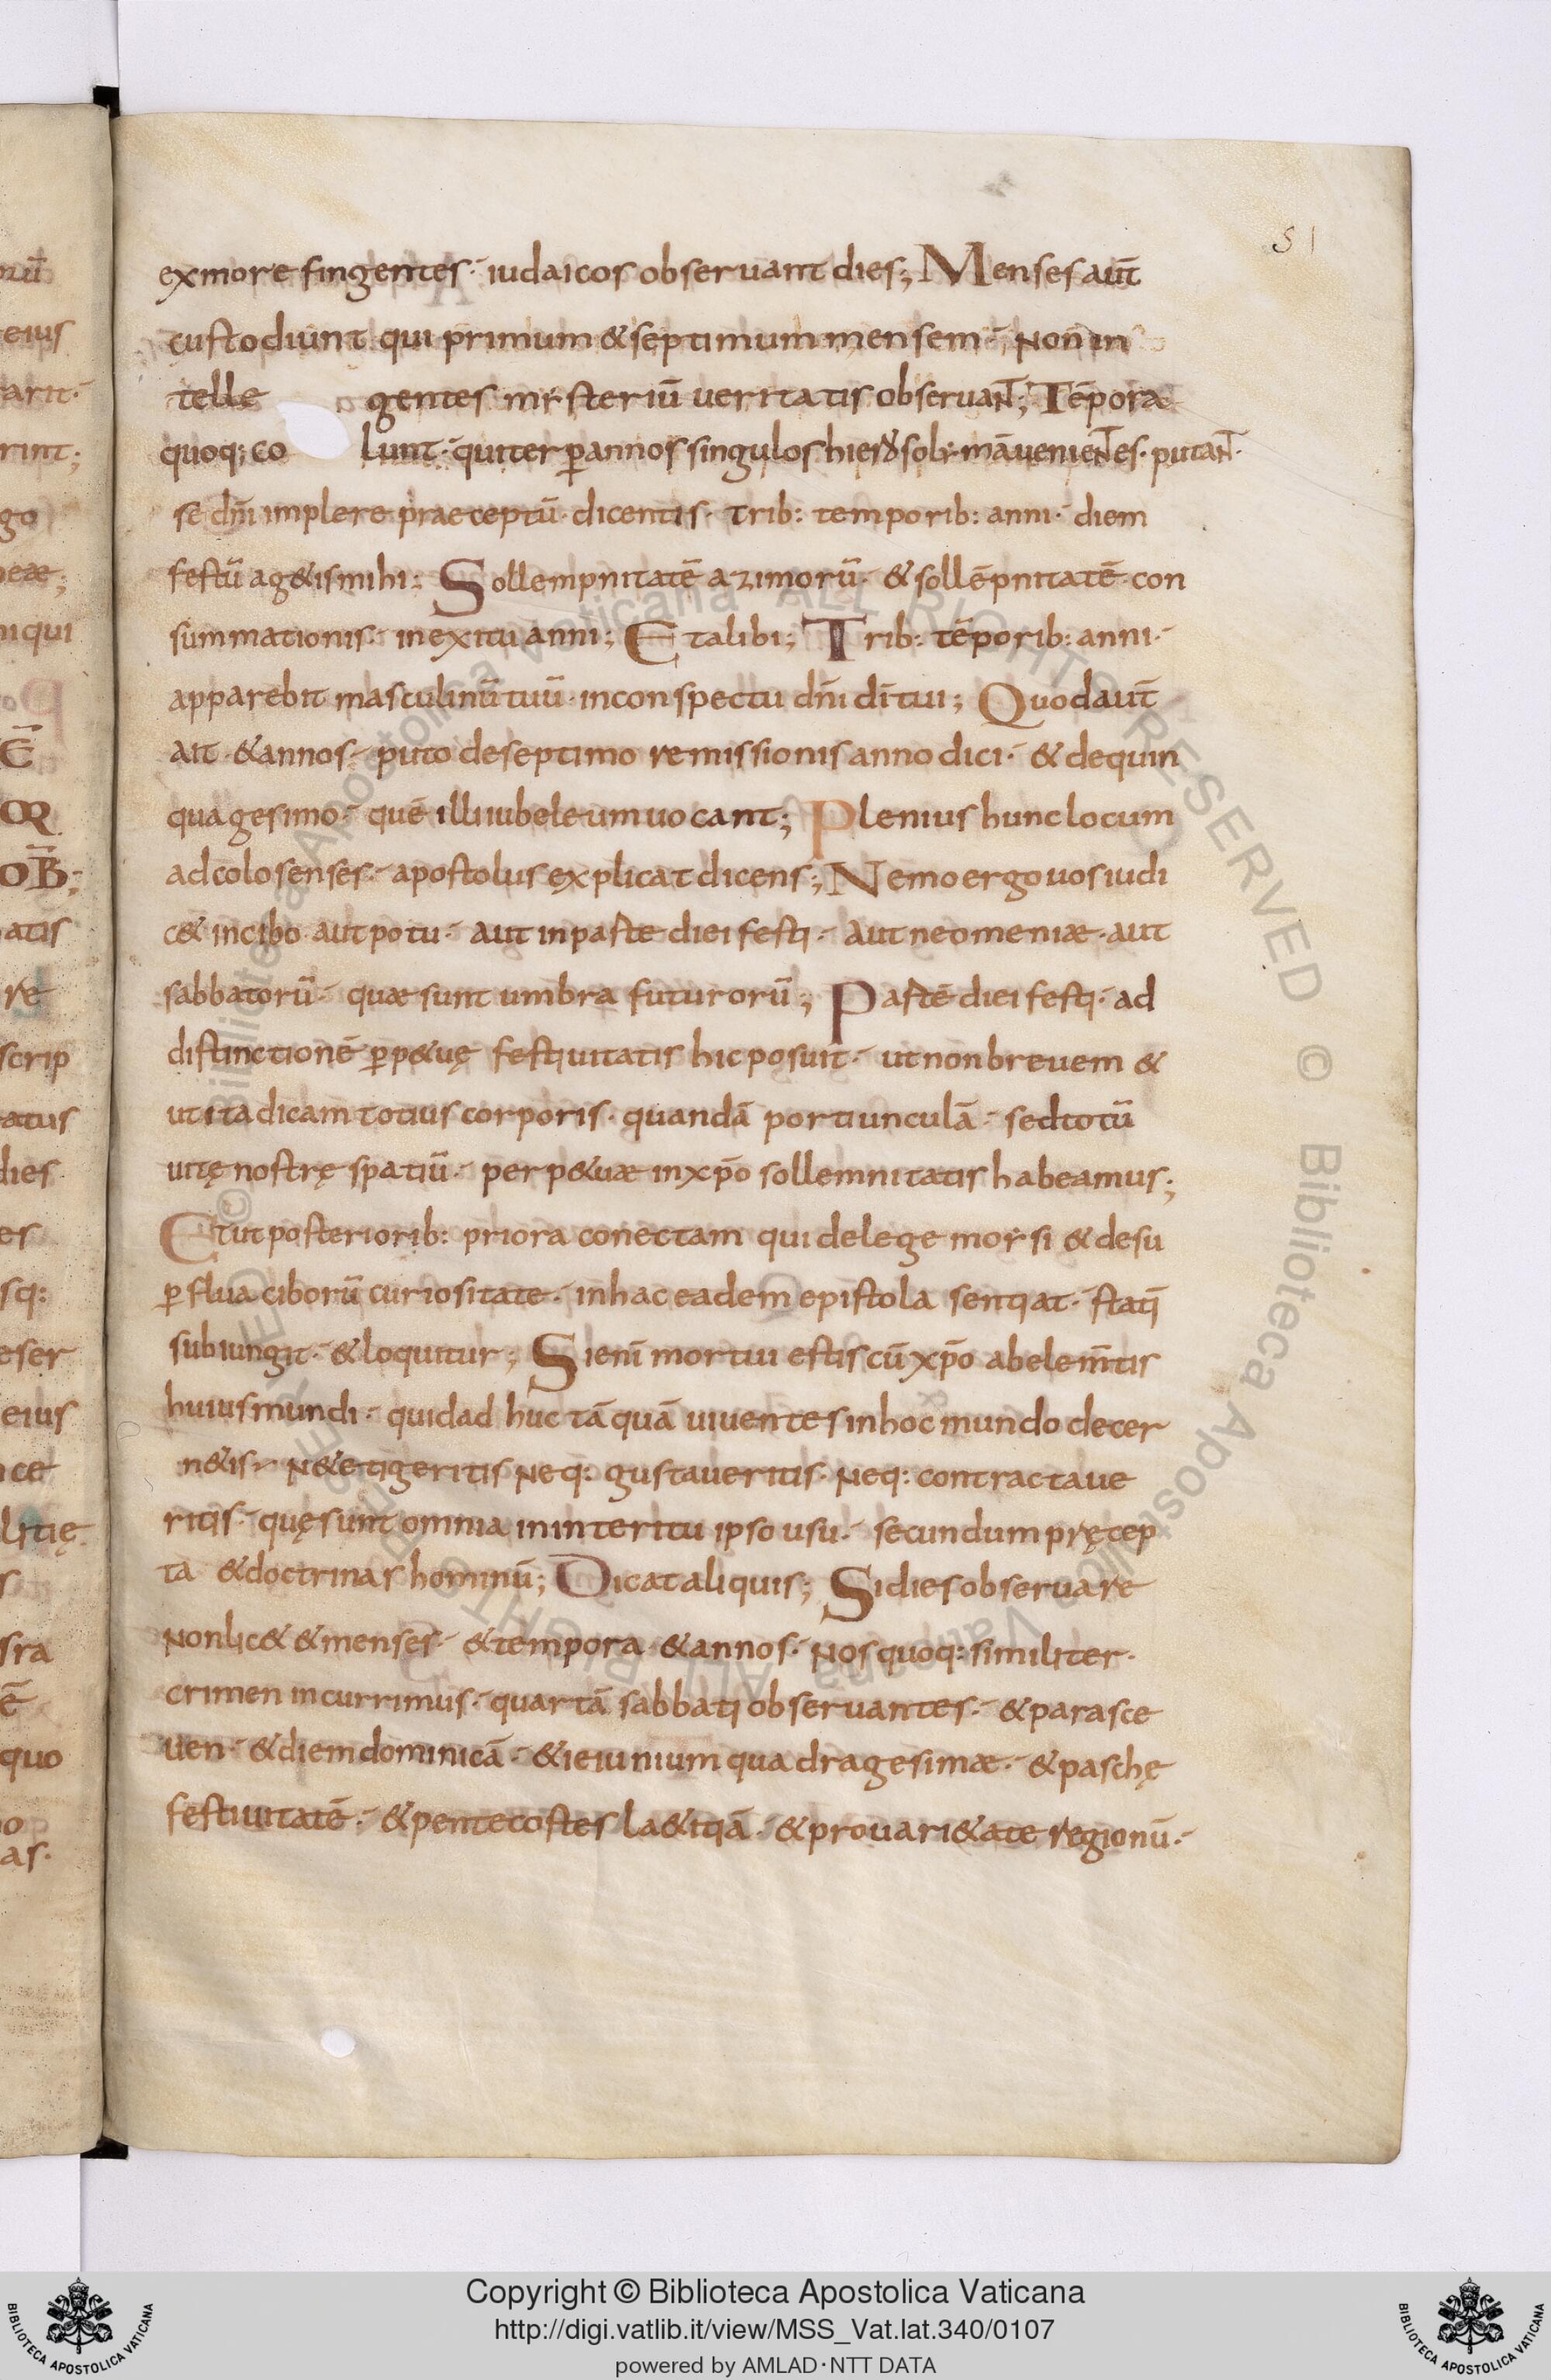 51
ex more fingentes· iudaicos obseruant dies; Menses aut̄
custodiunt qui primum & septimum mensem· Non in
telle gentes mẏsteriū ueritatis obseruant; Tēpora
quoq; co lunt· qui ter ꝑ annos singulos hierosolẏmā uenientes· putant·
se dn̄i implere praeceptū· dicentis· Trib: temporib: anni· diem
festū ag&is mihi; Sollempnitatē azimorū· & sollēpnitatē con
summationis· in exitu anni; Et alibi; Trib: tēporib: anni·
apparebit masculinū tuū· in conspectu dn̄i dī tui; Quod aut̄
ait· & annos· puto de septimo remissionis anno dici· & de quin
quagesimo· quē illi iubeleum uocant; Plenius hunc locum
ad colosenses· apostolus explicat dicens; Nemo ergo uos iudi
c& in cibo aut potu· aut in paste diei festi· aut neomeniæ· aut
sabbatorū· quæ sunt umbra futurorū; Pastē diei festi· ad
distinctionē ꝑp&uę festiuitatis hic posuit· ut non breuem &
ut ita dicam totius corporis· quandā portiunculā· sed totū
uitę nostrę spatiū· perp&uæ in xp̄o sollemnitatis habeamus;
Et ut posteriorib: priora conectam qui de lege moẏsi & de su
ꝑflua ciborū curiositate· in hac eadem epistola sentiat· statī
subiungit· & loquitur; Si enī mortui estis cū xp̄o ab elem̄tis
huius mundi· quid ad huc tāquā uiuentes in hoc mundo decer
n&is· N& etigeritis Neq: gustaueritis· Neq: contractaue
ritis· quę sunt omnia in interitu ipso usu· secundum pręcep
ta & doctrinas hominū; Dicat aliquis; Si dies obseruare
Non lic& & menses· & tempora & annos· Nos quoq: similiter·
crimen incurrimus· quartā sabbati obseruantes· & parasce
uen· & diem dominicā· & ieiunium quadragesimæ· & paschę
festiuitatē· & pentecostes la&itiā· & pro uari&ate regionū·
Copyright © Biblioteca Apostolica Vaticana
http://digi.vatlib.it/view/MSS_Vat.lat.340/0107
powered by AMLAD·NTT DATA
BIBLIOTECA APOSTOLICA VATICANA
BIBLIOTECA APOSTOLICA VATICANA